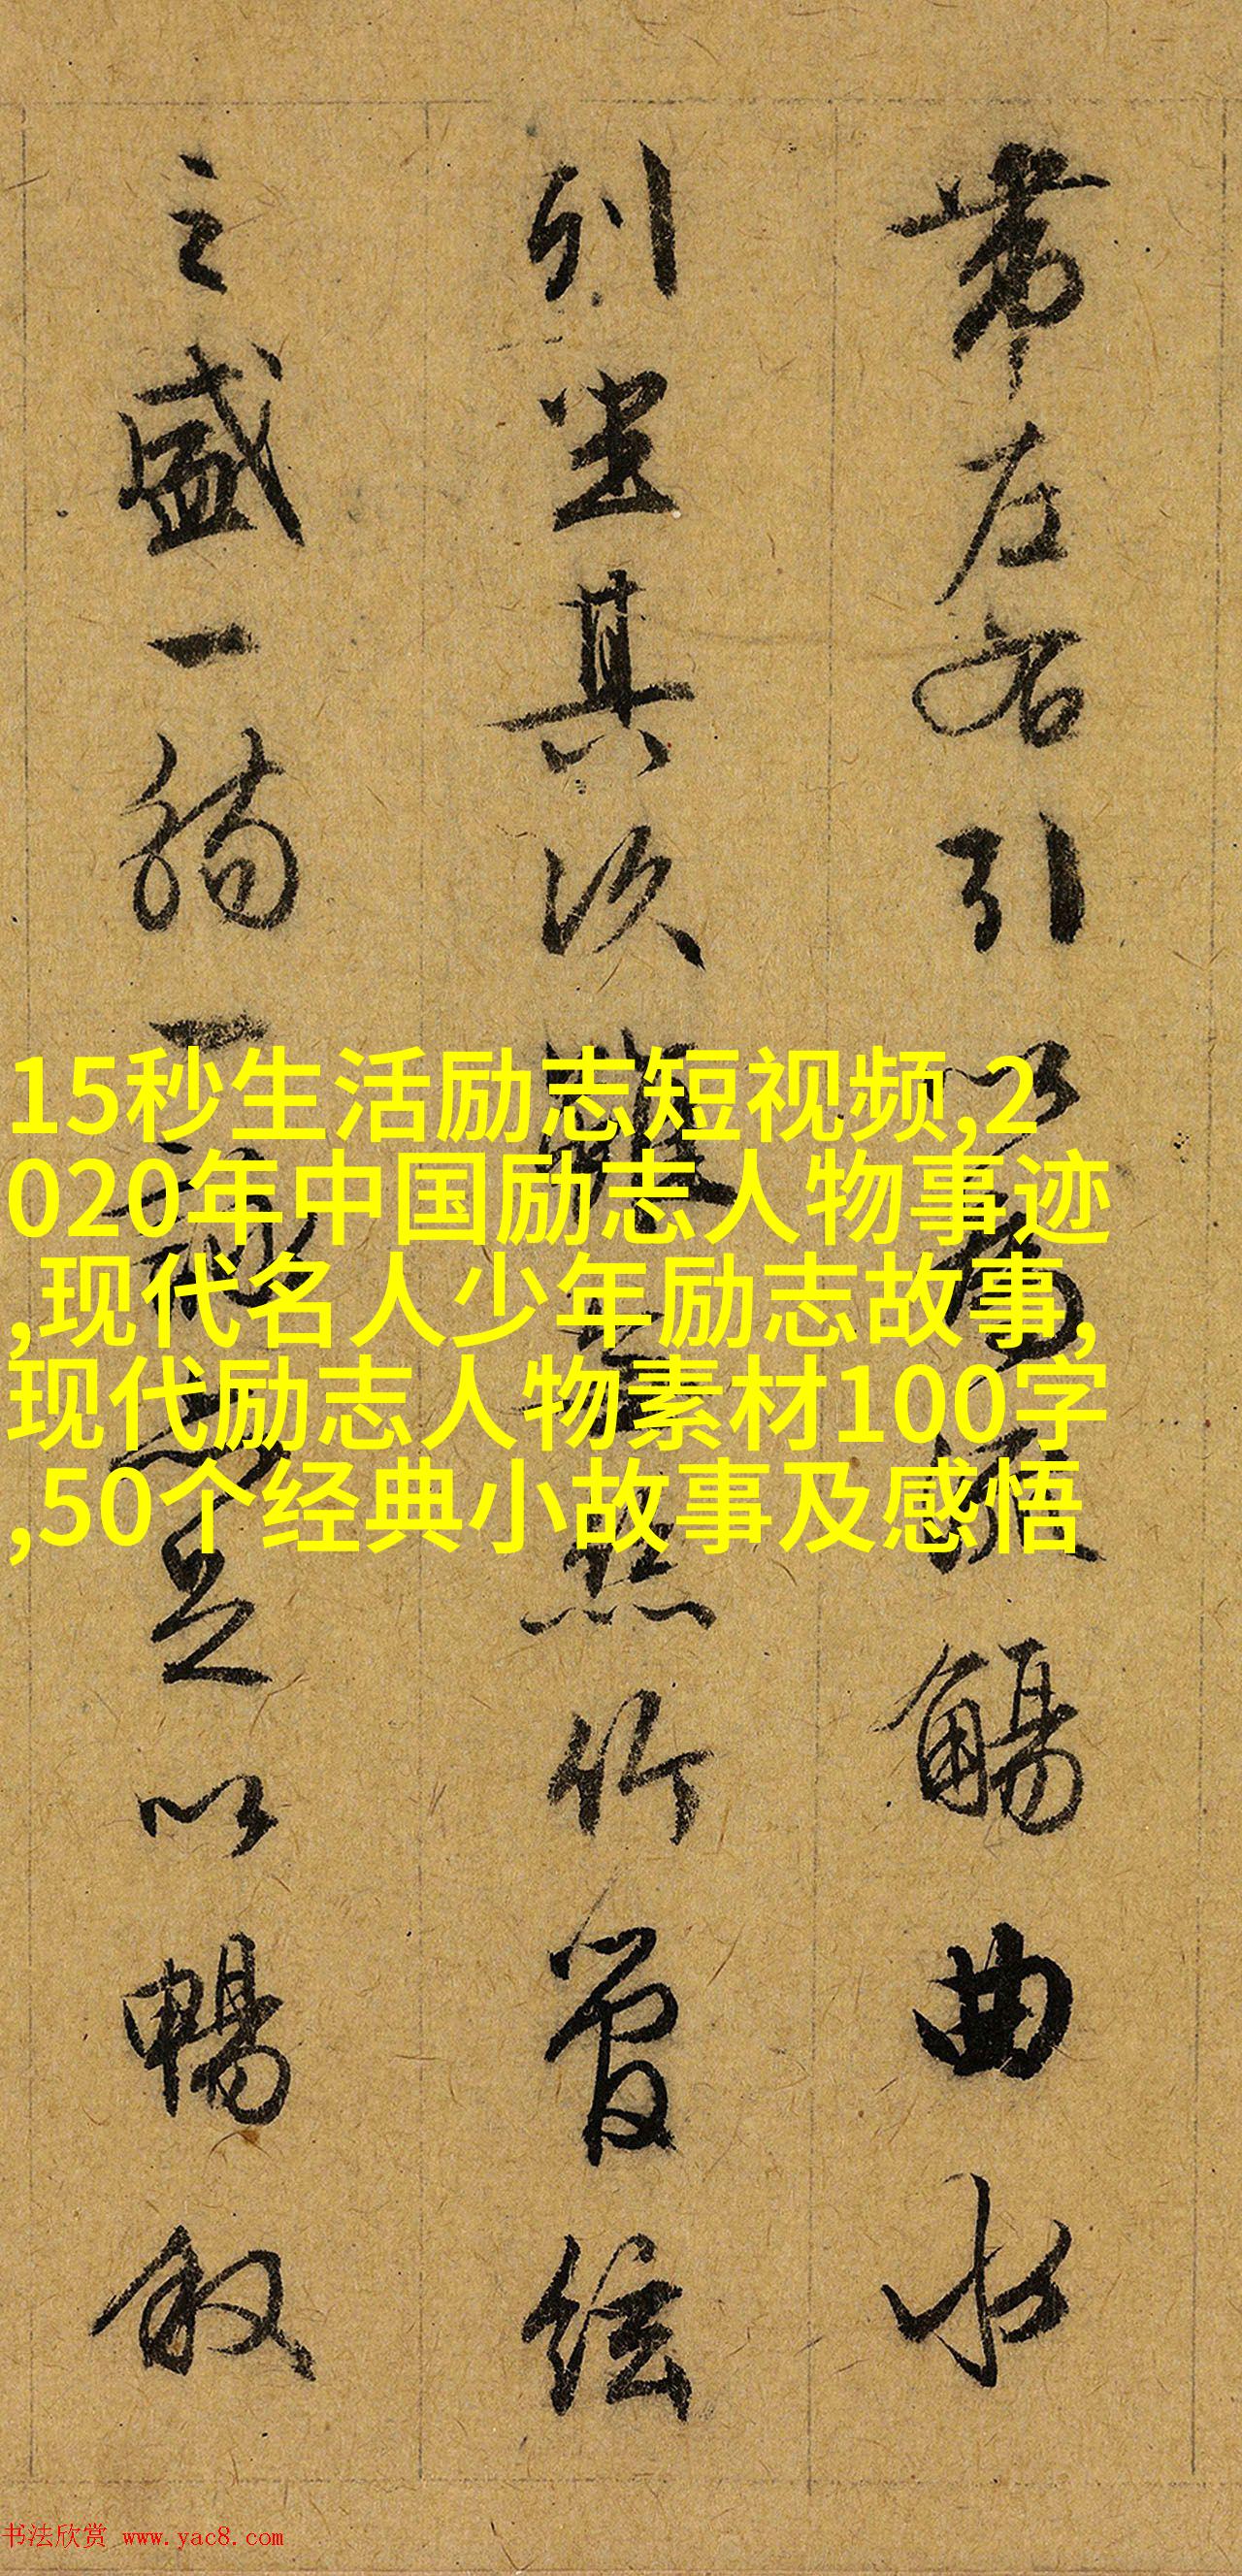 帶左右引以為流觴曲水
列坐其次雖無絲竹管絃
之盛一觴一詠亦足以暢敘
15秒生活励志短视频,2
020年中国励志人物事迹
,现代名人少年励志故事,
现代励志人物素材100字
,50个经典小故事及感悟
书法欣赏 www.yac8.com